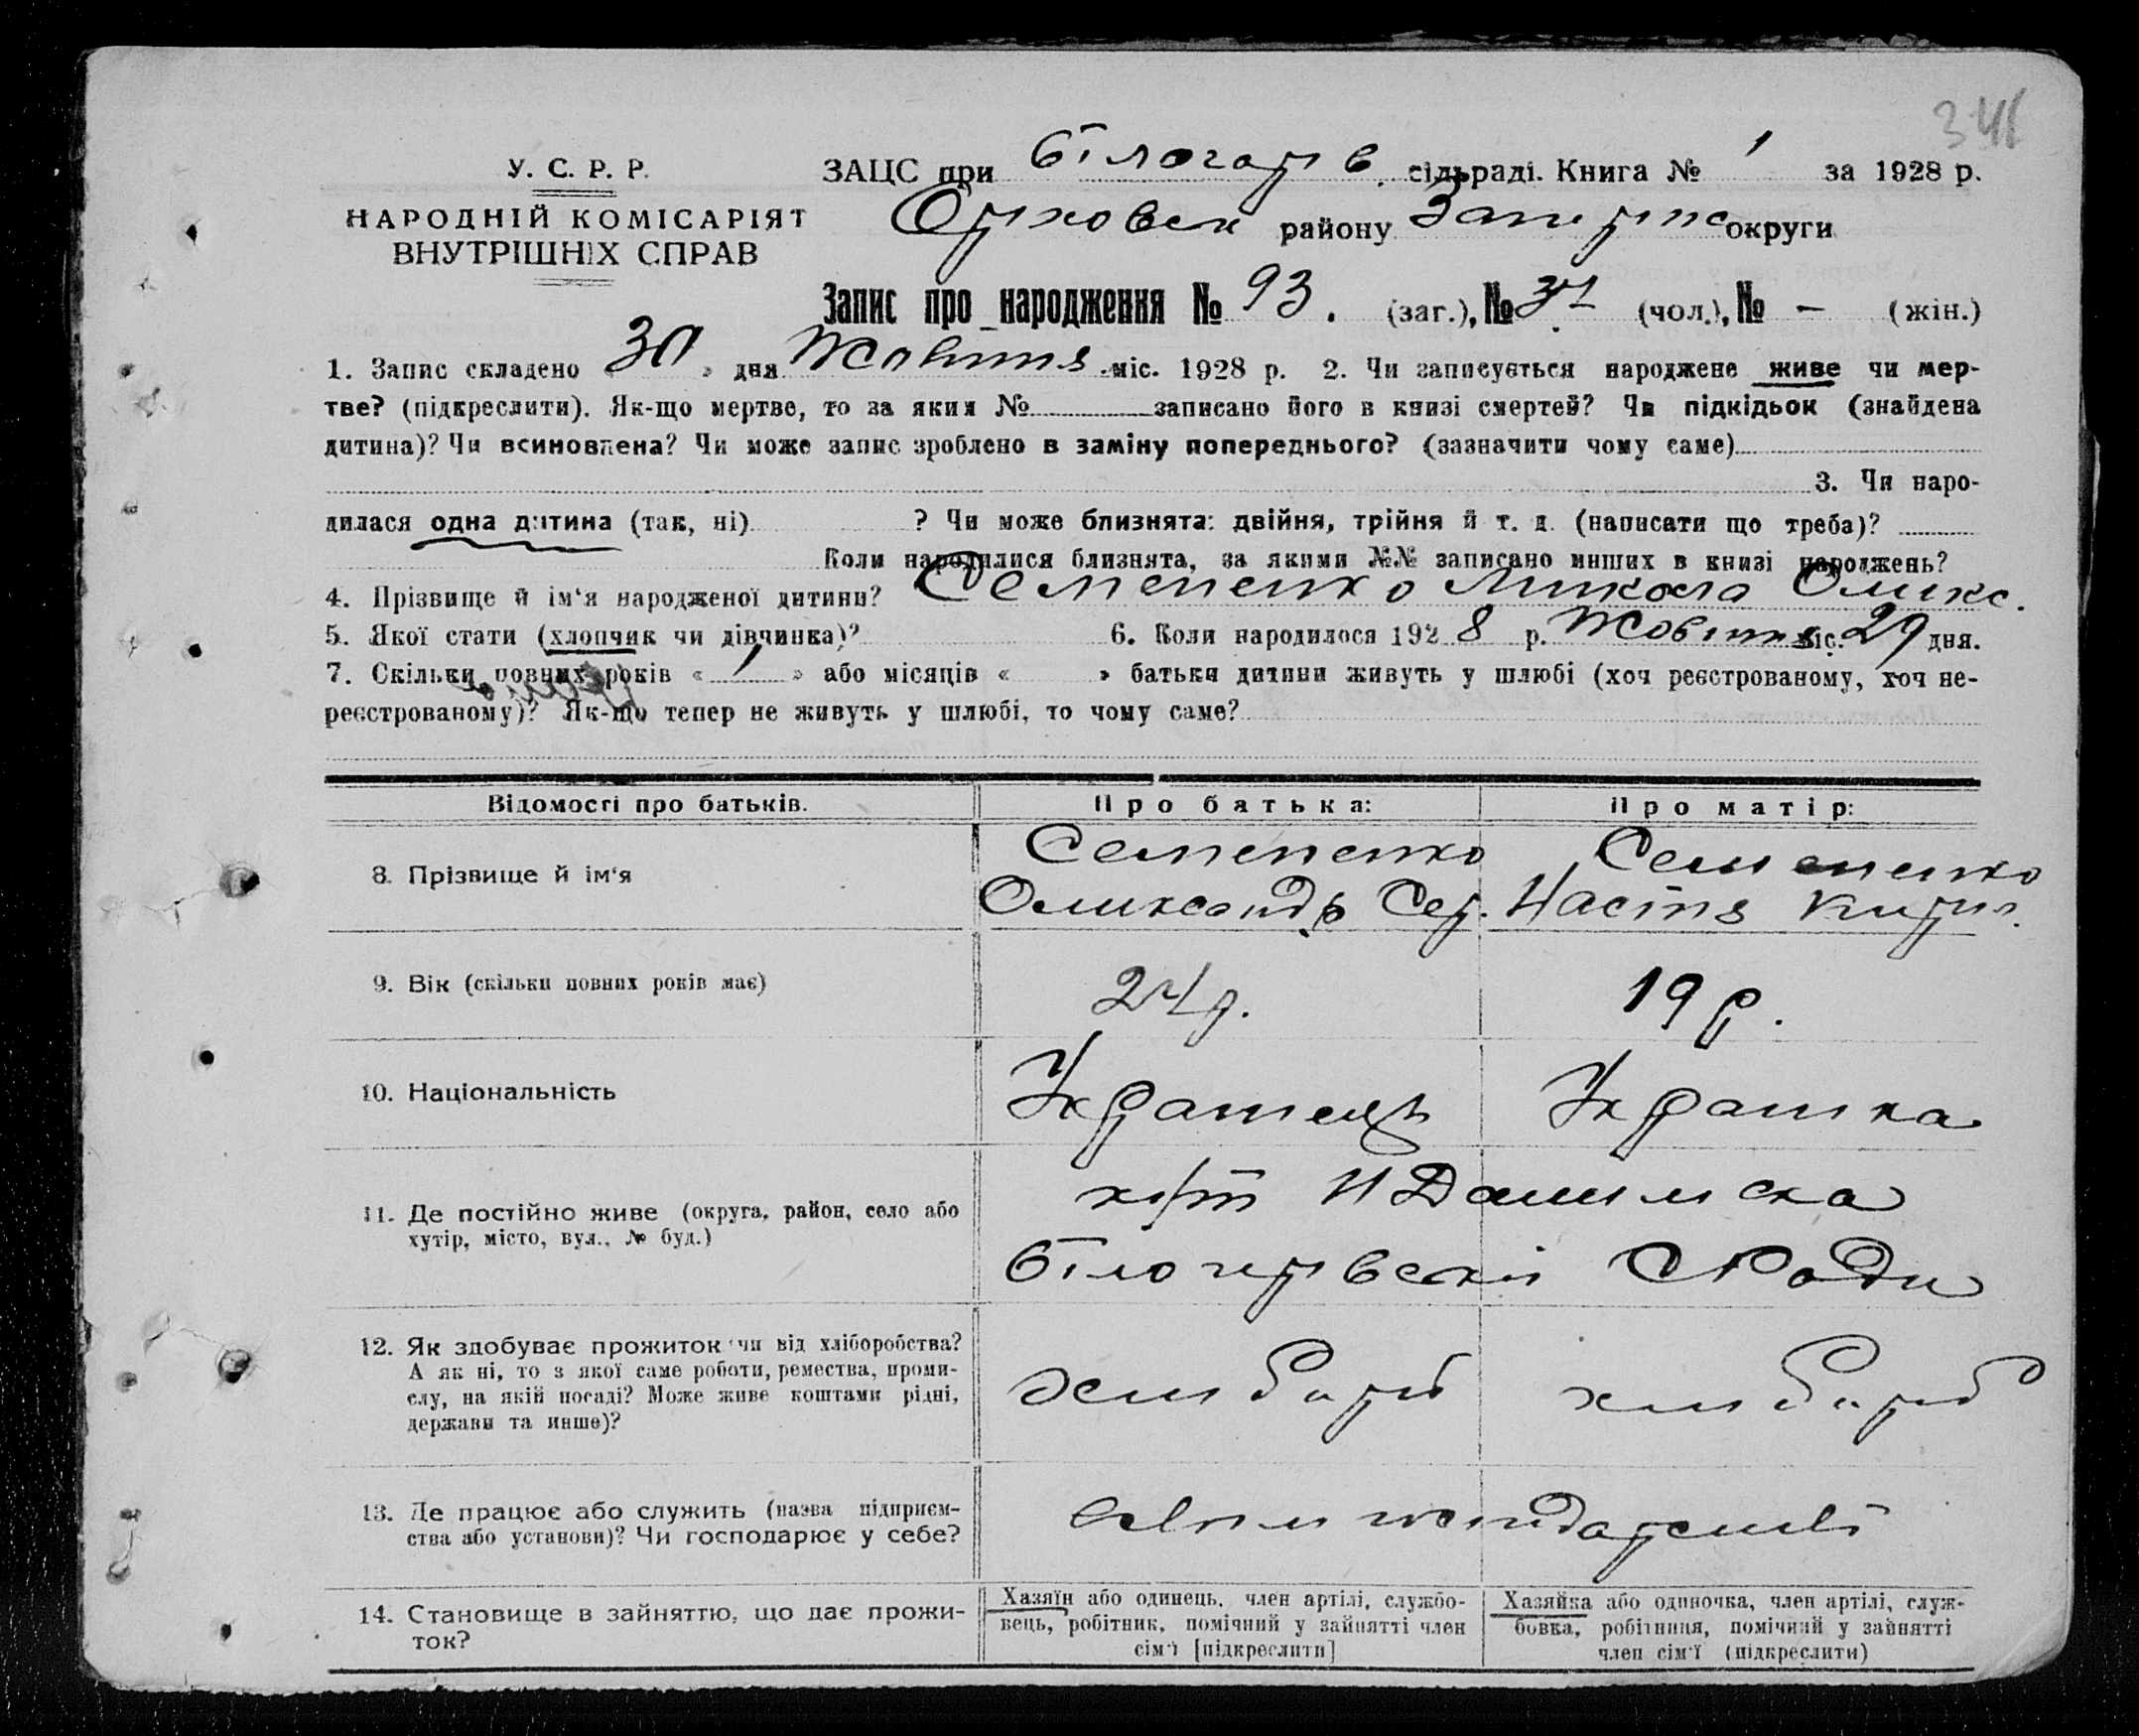 341
У. С. Р. Р.
НАРОДНІЙ КОМІСАРІЯТ
ВНУТРІШНІХ СПРАВ
ЗАЦС при Білогор в. сільраді. Книга № 1 за 1928 р.
району округи
Запис про народження № 93. (заг.), № (чол.), № – (жін.)
1. Запис складено « 30 » дня міс. 1928 р. 2. Чи записується народжене живе чи мер-
тве? (підкреслити). Як-що мертве, то за яким № записано його в книзі смертей? Чи підкідьок (знайдена
дитина)? Чи всиновлена? Чи може запис зроблено в заміну попереднього? (зазначити чому саме)
3. Чи наро-
дилася одна дитина (так, ні) ? Чи може близнята: двійня, трійня й т. д. (написати що треба)?
Коли народилися близнята, за якими №№ записано инших в книзі народжень?
4. Прізвище й ім‘я народженої дитини? Семененко Микола Оликс.
5. Якої стати (хлопчик чи дівчинка)? 6. Коли народилося 1928 р. міс. 29 дня.
7. Скільки повних років « 1 » або місяців « » батьки дитини живуть у шлюбі (хоч реєстрованому, хоч не-
реєстрованому)? Як-що тепер не живуть у шлюбі, то чому саме?
Відомості про батьків. Про батька: Про матір:
8. Прізвище й ім‘я
Семененко
Олександр Сер.
Семененко
Настя Кирил.
9. Вік (скільки повних років має) 24 р. 19 р.
10. Національність Украінець Украінка
11. Де постійно живе (округа, район, село або
хутір, місто, вул., № буд.)
Ради
12. Як здобуває прожиток (чи від хліборобства?
А як ні, то з якої саме роботи, ремества, проми-
слу, на якій посаді? Може живе коштами рідні,
держави та инше)?
хлибороб хлибороб
13. Де працює або служить (назва підприєм-
ства або установи)? Чи господарює у себе?
14. Становище в зайняттю, що дає прожи-
ток?
Хазяїн або одинець, член артілі, службо-
вець, робітник, помічний у зайнятті член
сім‘ї [підкреслити]
Хазяйка або одиночка, член артілі, служ-
бовка, робітниця, помічний у зайнятті
член сім‘ї (підкреслити)